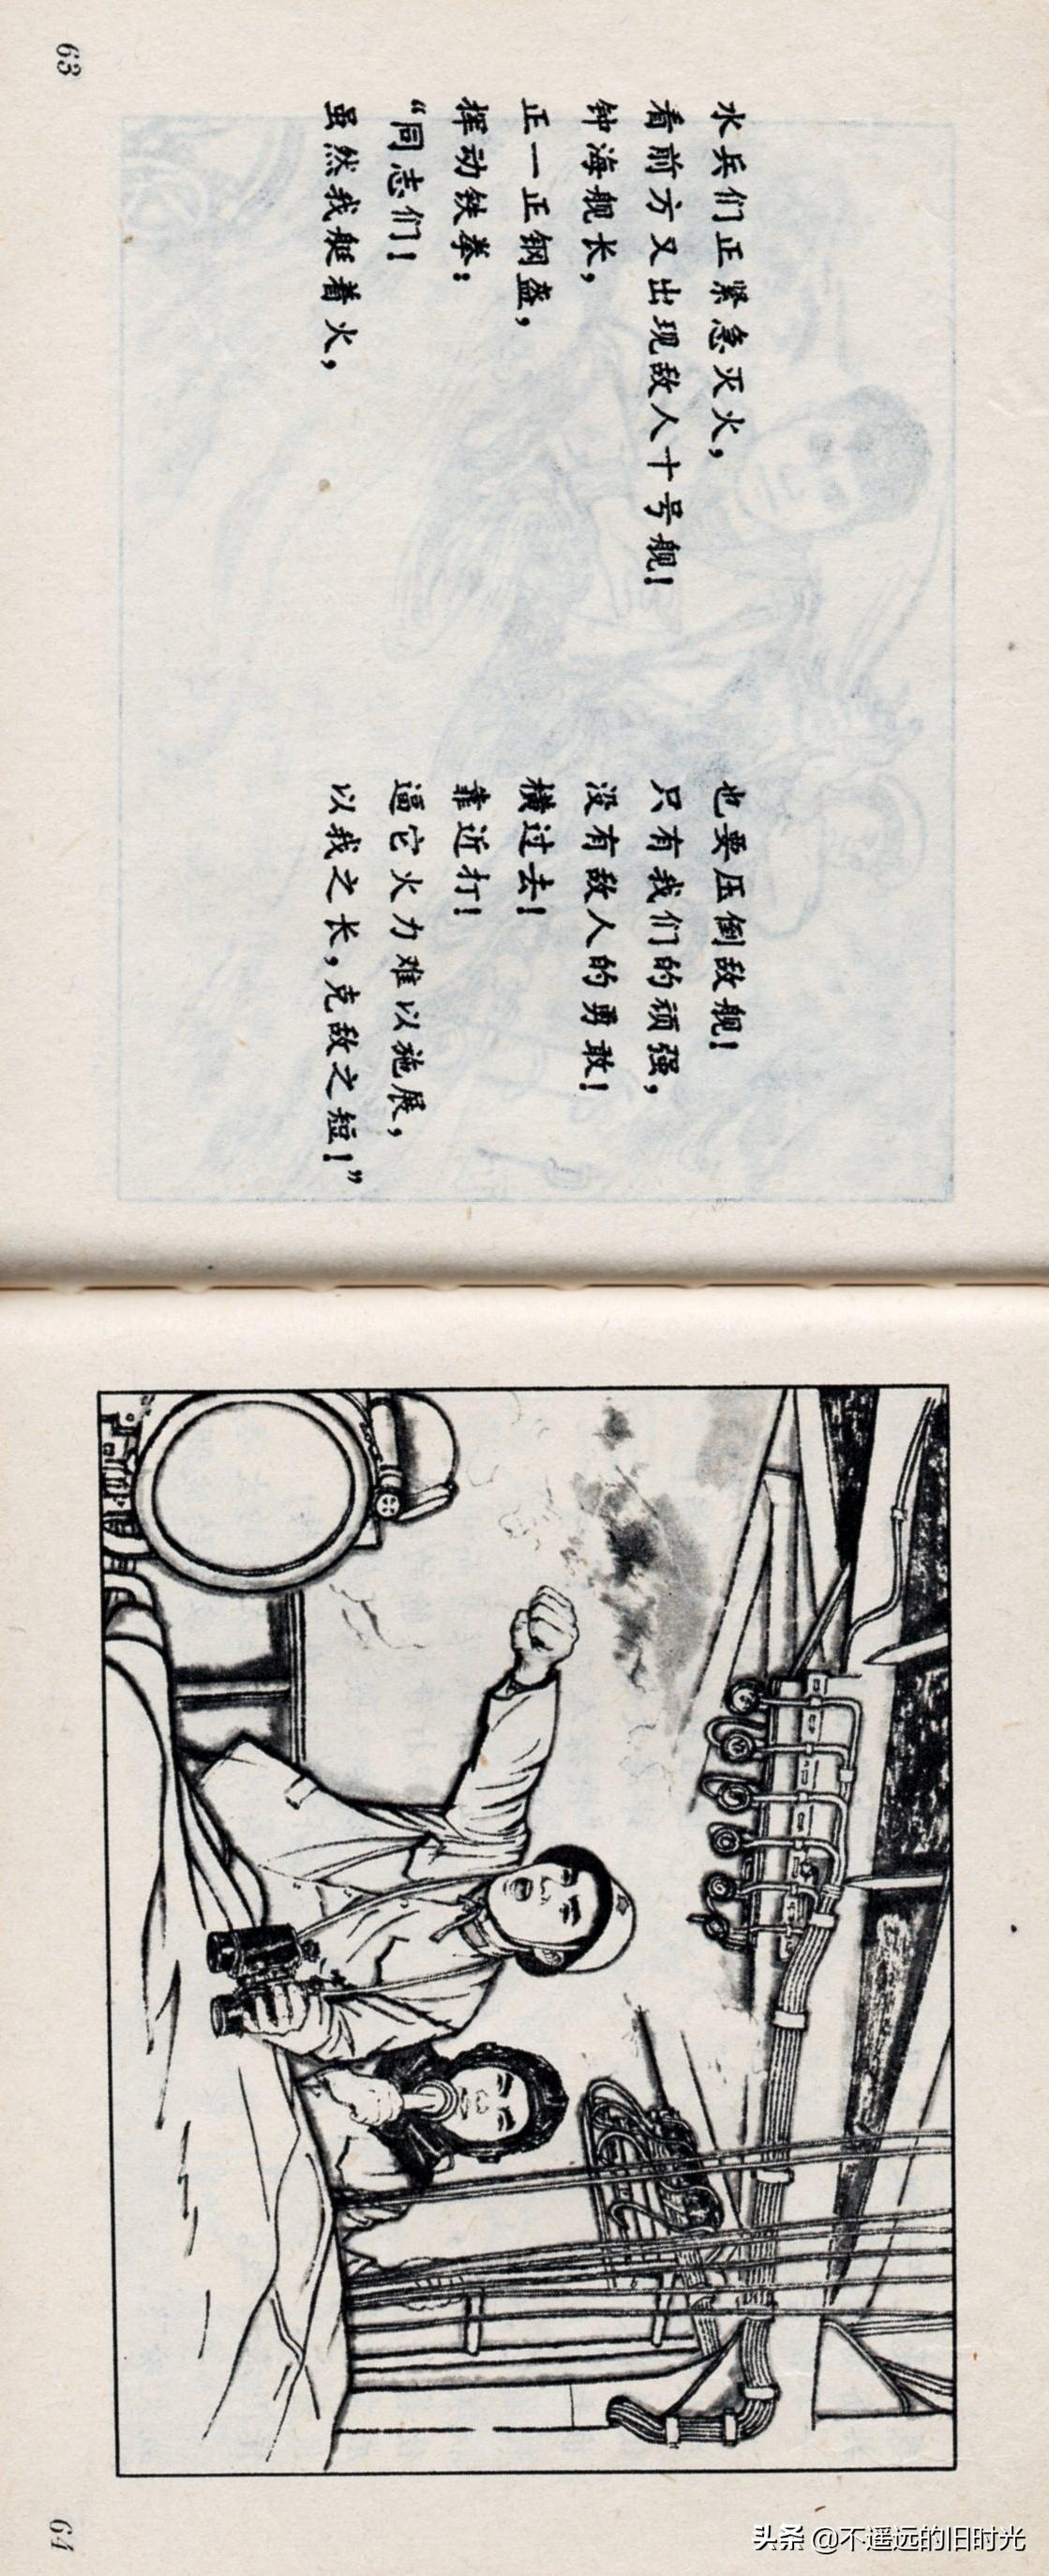 水兵们正紧急灭火，
看前方又出现敌人十号舰！
钟海舰长，
正一正钢盔，
挥动铁拳：
“同志们！
虽然我艇着火，
也要压倒敌舰！
只有我们的顽强，
没有敌人的勇敢！
横过去！
靠近打！
逼它火力难以施展，
以我之长，克敌之短！”
63
64
头条 @不遥远的旧时光